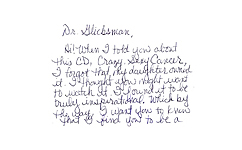 Dr. Glicksman,
Hi! When I told you about
this CD, Crazy Sexy Cancer,
I forgot that my daughter owned
it. I thought you might want
to watch it. I found it to be
truly inspirational. Which by
the way, I want you to know
that I find you to be a